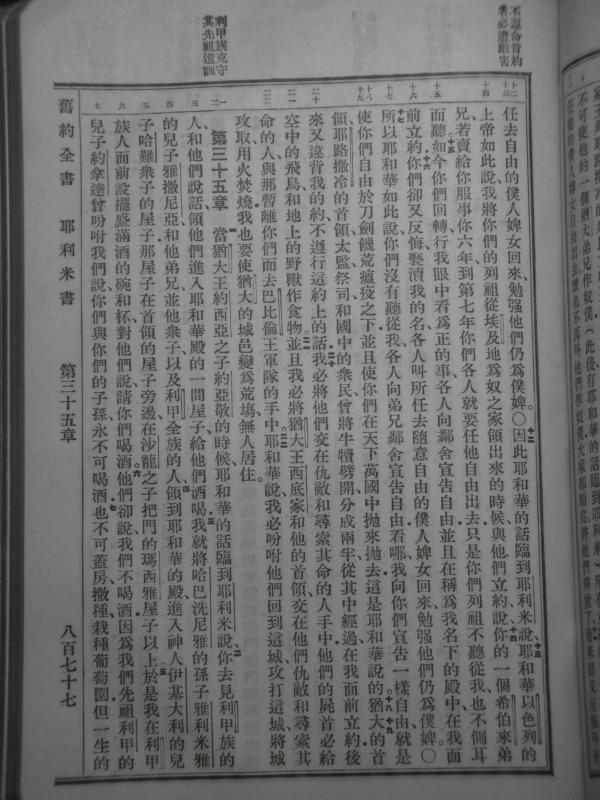 不遵命背約
者必遭敵害
利甲族克守
其先祖遺訓
任去自由的僕人婢女回來勉强他們仍爲僕婢〇因此耶和華的話臨到耶利米說耶和華以色列的
上帝如此說我將你們的列祖從埃及地爲奴之家領出來的時候與他們立約說你的一個希伯來弟
兄若賣給你服事你六年到第七年你們各人就要任他自由出去只是你們列祖不聽從我也不側耳
而聽如今你們回轉行我眼中看爲正的事各人向鄰舍宣告自由並且在稱爲我名下的殿中在我面
前立約你們卻又反悔褻瀆我的名各人叫所任去隨意自由的僕人婢女回來勉强他們仍爲僕婢〇
所以耶和華如此說你們沒有聽從我各人向弟兄鄰舍宣告自由看哪我向你們宣告一樣自由就是
使你們自由於刀劍饑荒瘟疫之下並且使你們在天下萬國中拋來拋去這是耶和華說的猶大的首
領耶路撒冷的首領太監祭司和國中的衆民曾將牛犢劈開分成兩半從其中經過在我面前立約後
來又違背我的約不遵行這約上的話我必將他們交在仇敵和尋索其命的人手中他們的屍首必給
空中的飛鳥和地上的野獸作食物並且我必將猶大王西底家和他的首領交在他們仇敵和尋索其
命的人與那暫離你們而去巴比倫王軍隊的手中耶和華說我必吩咐他們回到這城攻打這城將城
攻取用火焚燒我也要使猶大的城邑變爲荒塲無人居住。
第三十五章 當猶大王約西亞之子約亞敬的時候耶和華的話臨到耶利米說你去見利甲族的
人和他們說話領他們進入耶和華殿的一間屋子給他們酒喝我就將哈巴洗尼雅的孫子雅利米雅
的兒子雅撒尼亞和他弟兄並他衆子以及利甲全族的人領到耶和華的殿進入神人伊基大利的兒
子哈難衆子的屋子那屋子在首領的屋子旁邊在沙龍之子把門的瑪西雅屋子以上於是我在利甲
族人面前設擺盛滿酒的碗和杯對他們說請你們喝酒他們卻說我們不喝酒因爲我們先祖利甲的
兒子約拿達曾吩咐我們說你們與你們的子孫永不可喝酒也不可蓋房撒種栽種葡萄園但一生的
舊約全書 耶利米書 第三十五章 八百七十七